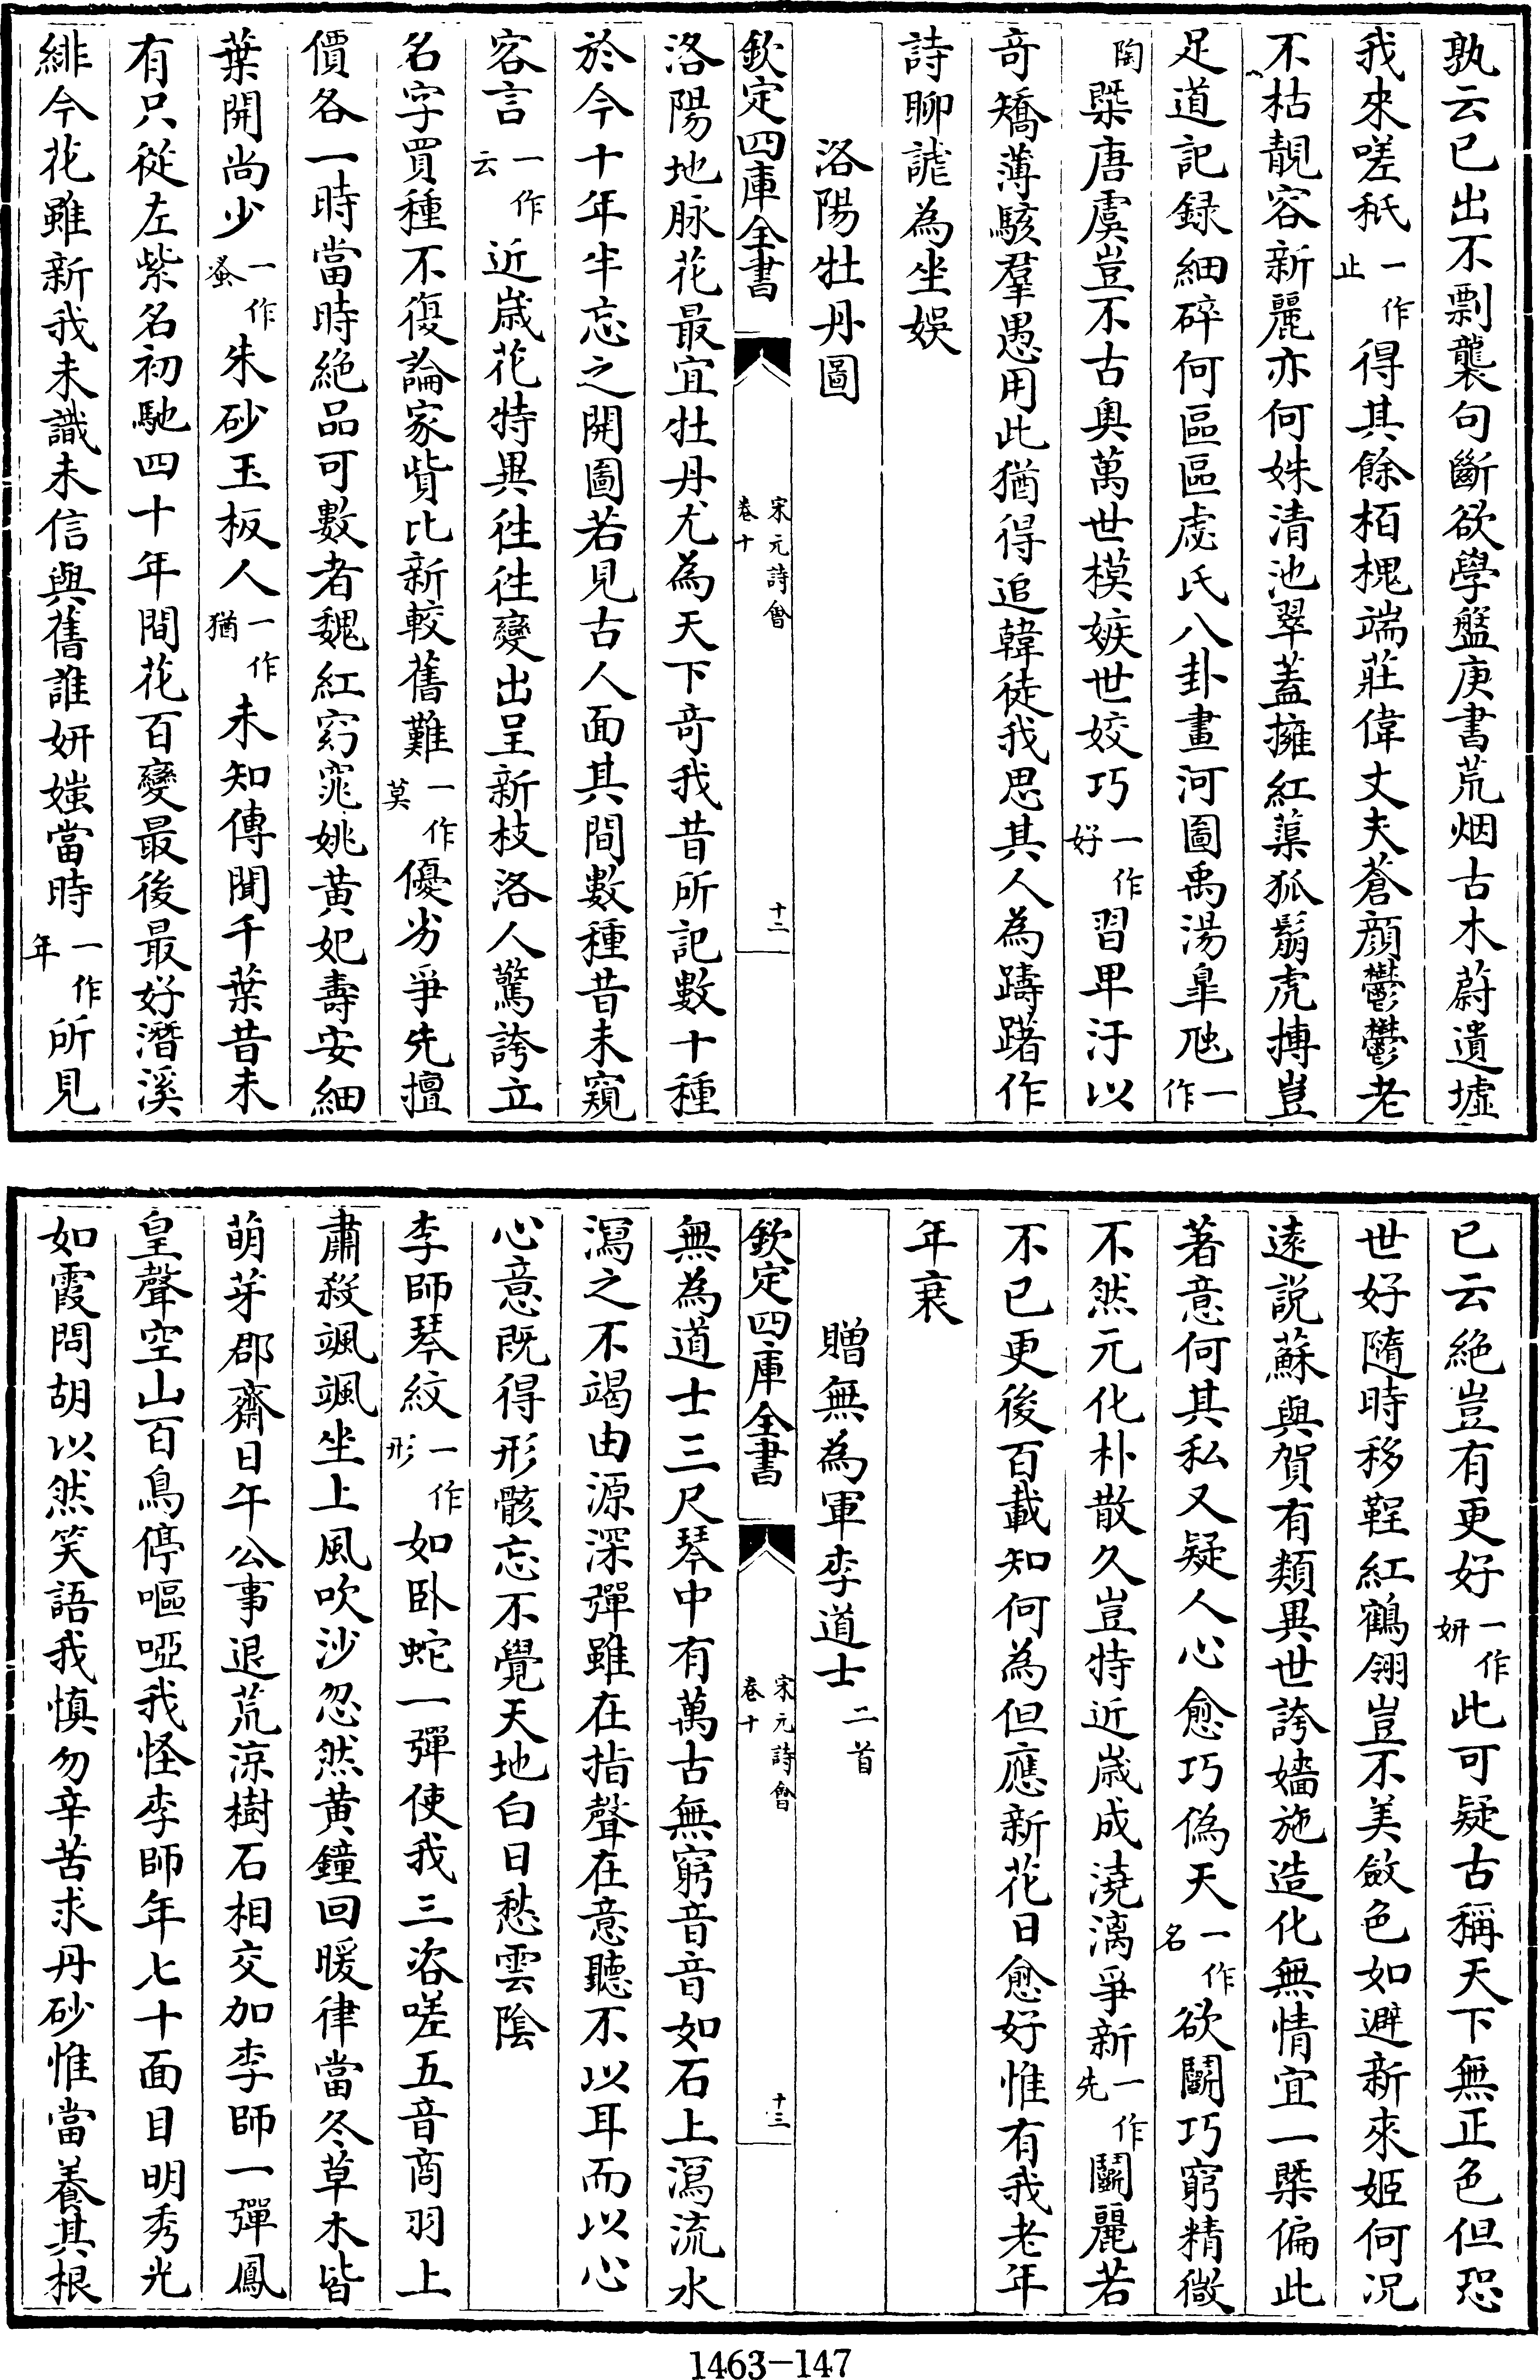 孰云已出不剽襲句斷欲學盤庚書荒烟古木蔚遺墟
我來嗟秖一作止得其餘栢槐端莊偉丈夫蒼顔鬱鬱老
不枯靚容新麗亦何姝清池翠蓋擁紅蕖狐鬍虎搏豈
足道記録細碎何區區虙氏八卦畫河圖禹湯臯虺一作
陶槩唐虞豈不古奥萬世模嫉世姣巧一作好習卑汙以
奇矯薄駭羣愚用此猶得追韓徒我思其人為躊躇作
詩聊謔為坐娛
洛陽牡丹圖
欽定四庫全書
宋元詩會
卷十
十二
洛陽地脉花最宜牡丹尤為天下奇我昔所記數十種
於今十年半忘之開圖若見古人面其間數種昔未窺
客言一作云近歲花特異徃徃變出呈新枝洛人驚誇立
名字買種不復論家貲比新較舊難一作莫優劣爭先擅
價各一時當時絶品可數者魏紅窈窕姚黄妃壽安細
葉開尚少一作蚤朱砂玉板人一作猶未知傳聞千葉昔未
有只從左紫名初馳四十年間花百變最後最好潛溪
緋今花雖新我未識未信與舊誰妍媸當時一作年所見
已云絶豈有更好一作妍此可疑古稱天下無正色但恐
世好隨時移鞓紅鶴翎豈不美斂色如避新來姬何况
逺説蘇與賀有類異世誇嬙施造化無情宜一槩偏此
著意何其私又疑人心愈巧偽天一作名欲鬭巧窮精微
不然元化朴散久豈特近歲成澆漓爭新一作先鬭麗若
不已更後百載知何為但應新花日愈好惟有我老年
年衰
贈無為軍李道士二首
欽定四庫全書
宋元詩會
卷十
十三
無為道士三尺琴中有萬古無窮音音如石上瀉流水
瀉之不竭由源深彈雖在指聲在意聽不以耳而以心
心意既得形骸忘不覺天地白日愁雲隂
李師琴紋一作形如卧蛇一彈使我三咨嗟五音商羽上
肅殺颯颯坐上風吹沙忽然黄鐘回暖律當冬草木皆
萌芽郡齋日午公事退荒涼樹石相交加李師一彈鳳
皇聲空山百鳥停嘔啞我怪李師年七十面目明秀光
如霞問胡以然笑語我慎勿辛苦求丹砂惟當養其根
1463-147